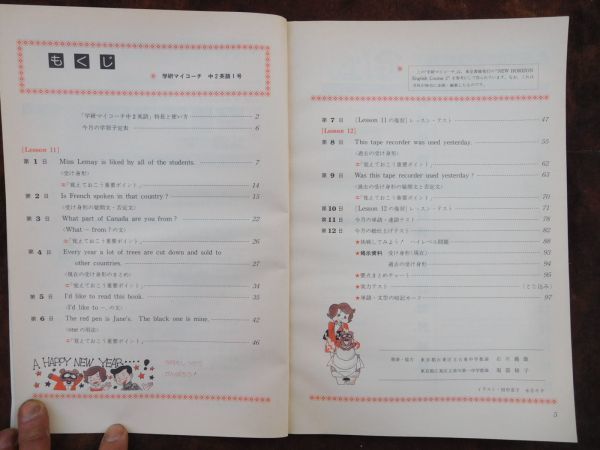 もくじ
学研マイコーチ 中2英語1号
「学研マイコーチ中2英語」特長と使い方 2
今月の学習予定表 6
[Lesson 11]
第1日 Miss Lemay is liked by all of the students. 7
〈受け身形〉
「覚えておこう重要ポイント」 14
第2日 Is French spoken in that country? 15
〈受け身形の疑問文・否定文〉
第3日 What part of Canada are you from? 22
〈What ― from?の文〉
「覚えておこう重要ポイント」 26
第4日 Every year a lot of trees are cut down and sold to
other countries. 27
〈現在の受け身形のまとめ〉
「覚えておこう重要ポイント」 34
第5日 I'd like to read this book. 35
〈I'd like to ～.の文〉
第6日 The red pen is Jane's. The black one is mine. 42
〈oneの用法〉
「覚えておこう重要ポイント」 46
A HAPPY NEW YEAR
この「学研マイコーチ」は、東京書籍発行の"NEW HORIZON
English Course 2"を
第7日 [Lesson 11の復習] レッスン・テスト 47
[Lesson 12]
第8日 This tape recorder was used yesterday. 55
〈過去の受け身形〉
「覚えておこう重要ポイント」 62
第9日 Was this tape recorder used yesterday? 63
〈過去の受け身形の疑問文と否定文〉
「覚えておこう重要ポイント」 70
第10日 [Lesson 12の復習] レッスン・テスト 71
第11日 今月の単語・連語テスト 78
第12日 今月の総仕上げテスト 82
★挑戦してみよう! ハイレベル問題 88
★掲示資料 受け身形(現在) 93
過去の受け身形 94
★要点まとめチャート 95
★実力テスト (とじ込み)
★単語・文型の暗記カード 97
5